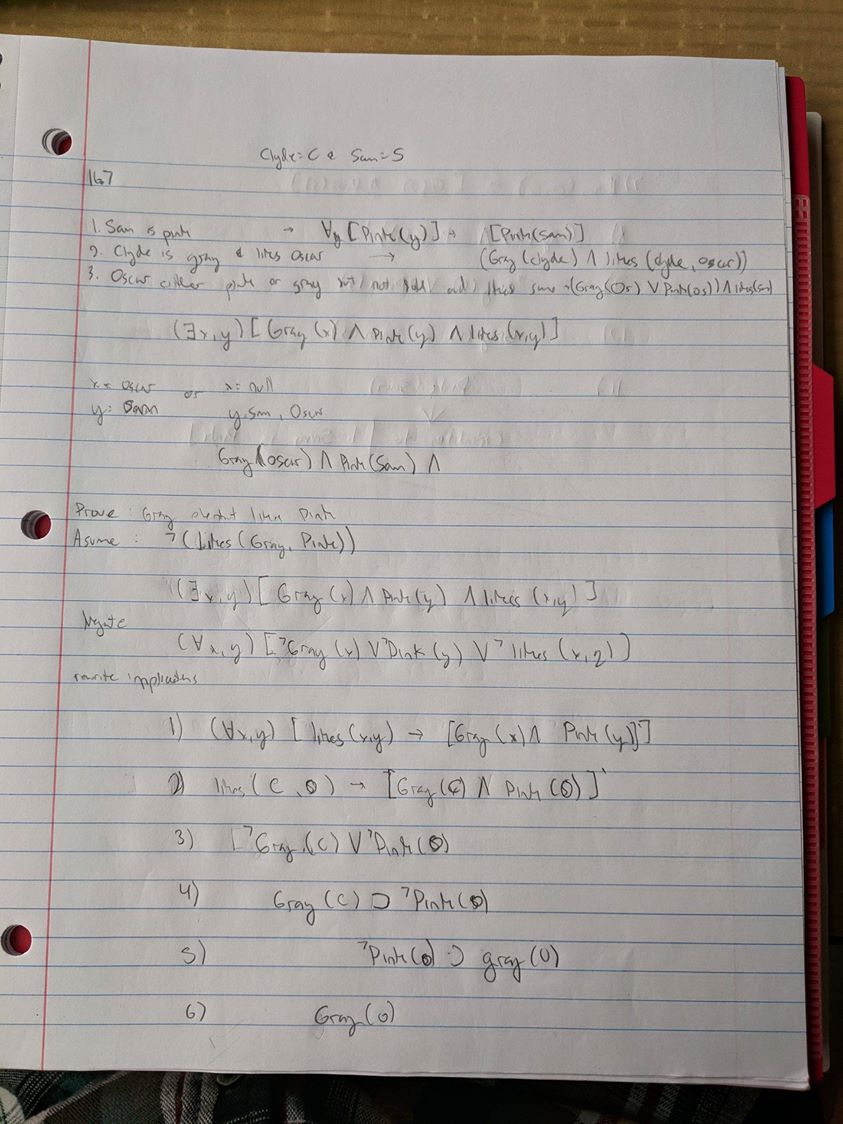 Clyde = C & Sam = S
167
1. Sam is pink → ∀y [Pink(y)] → [Pink(Sam)]
2. Clyde is gray & likes Oscar → (Gray (clyde) ∧ likes (clyde, oscar))
3. Oscar either pink or gray but not both and likes (Gray(Os) ∨ Pink(os)) ∧ likes
(∃x,y) [Gray (x) ∧ Pink(y) ∧ likes (x,y)]
x = oscar or x = null
y: Sam y: Sam, Oscar
Gray (oscar) ∧ Pink (Sam) ∧
Prove : Gray likes Pink
Asume : ¬(likes (Gray, Pink))
(∃x,y) [Gray (x) ∧ Pink(y) ∧ likes (x,y)]
Negate
(∀x,y) [¬Gray (x) ∨ ¬Pink (y) ∨ ¬ likes (x,y)]
rewrite
1) (∀x,y) [likes (x,y) → [Gray (x) ∧ Pink (y)]]
2) likes (C, O) → [Gray (C) ∧ Pink (O)]
3) [¬Gray (C) ∨ ¬Pink (O)
4) Gray (C) ⊃ ¬Pink (O)
5) ¬Pink (O) ⊃ gray (O)
6) Gray (O)